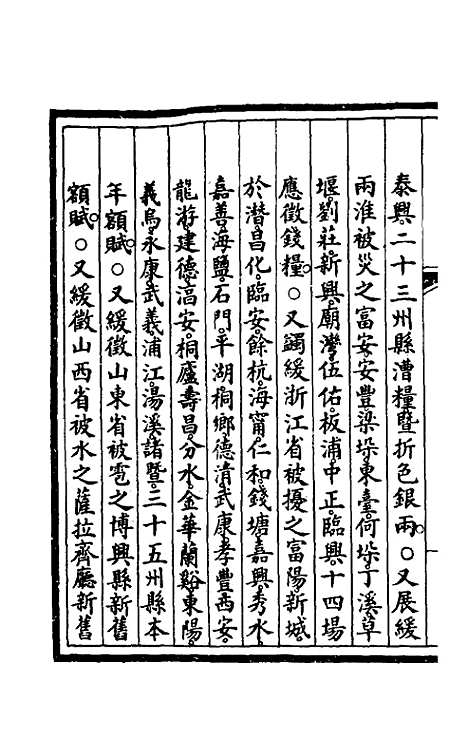 泰興二十三州縣漕糧暨折色銀兩○又展緩
兩淮被災之富安安豐梁垛東臺何垛丁溪草
堰劉莊新興廟灣伍佑板浦中正臨興十四場
應徵錢糧○又蠲緩浙江省被擾之富陽新城
於潛昌化臨安餘杭海甯仁和錢塘嘉興秀水
嘉善海鹽石門平湖桐鄉德清武康孝豐西安
龍游建德湻安桐廬壽昌分水金華蘭谿東陽
義烏永康武義浦江湯溪諸暨三十五州縣本
年額賦○又緩徵山東省被雹之博興縣新舊
額賦○又緩徵山西省被水之薩拉齊廳新舊